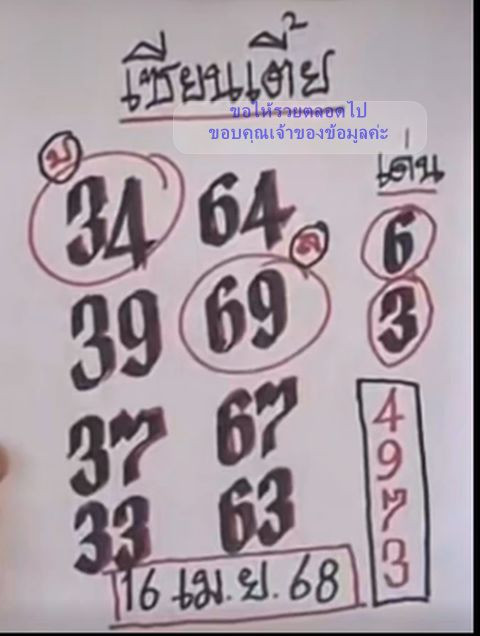 เซียนเตี้ย 2
ขอให้รวยตลอดไป
ขอบคุณเจ้าของข้อมูลค่ะ
เด่น
บ
34 64
6
ล
39 69
3
37 67
33 63
4
9
7
3
16 เม.ย. 68